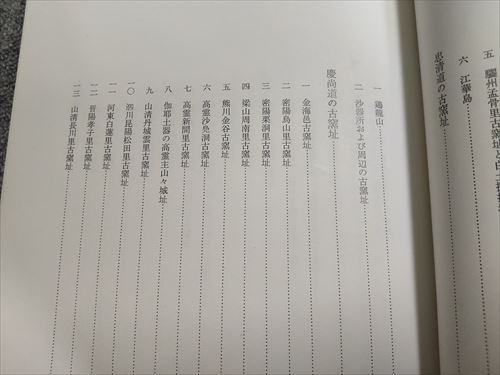 五 驪州孟骨里古窯址
六 江華島
忠清道の古窯址
一 鶏龍山
二 沙器所および周辺の古窯址
慶尚道の古窯址
一 金海邑古窯址
二 密陽烏山里古窯址
三 密陽栗洞里古窯址
四 梁山周南里古窯址
五 熊川金谷古窯址
六 高霊沙鳧洞古窯址
七 高霊新間里古窯址
八 伽耶土器の高霊主山々城址
九 山清丹城雲里古窯址
一〇 泗川昆陽松田里古窯址
一一 河東白蓮里古窯址
一二 晋陽孝子里古窯址
一三 山清長川里古窯址